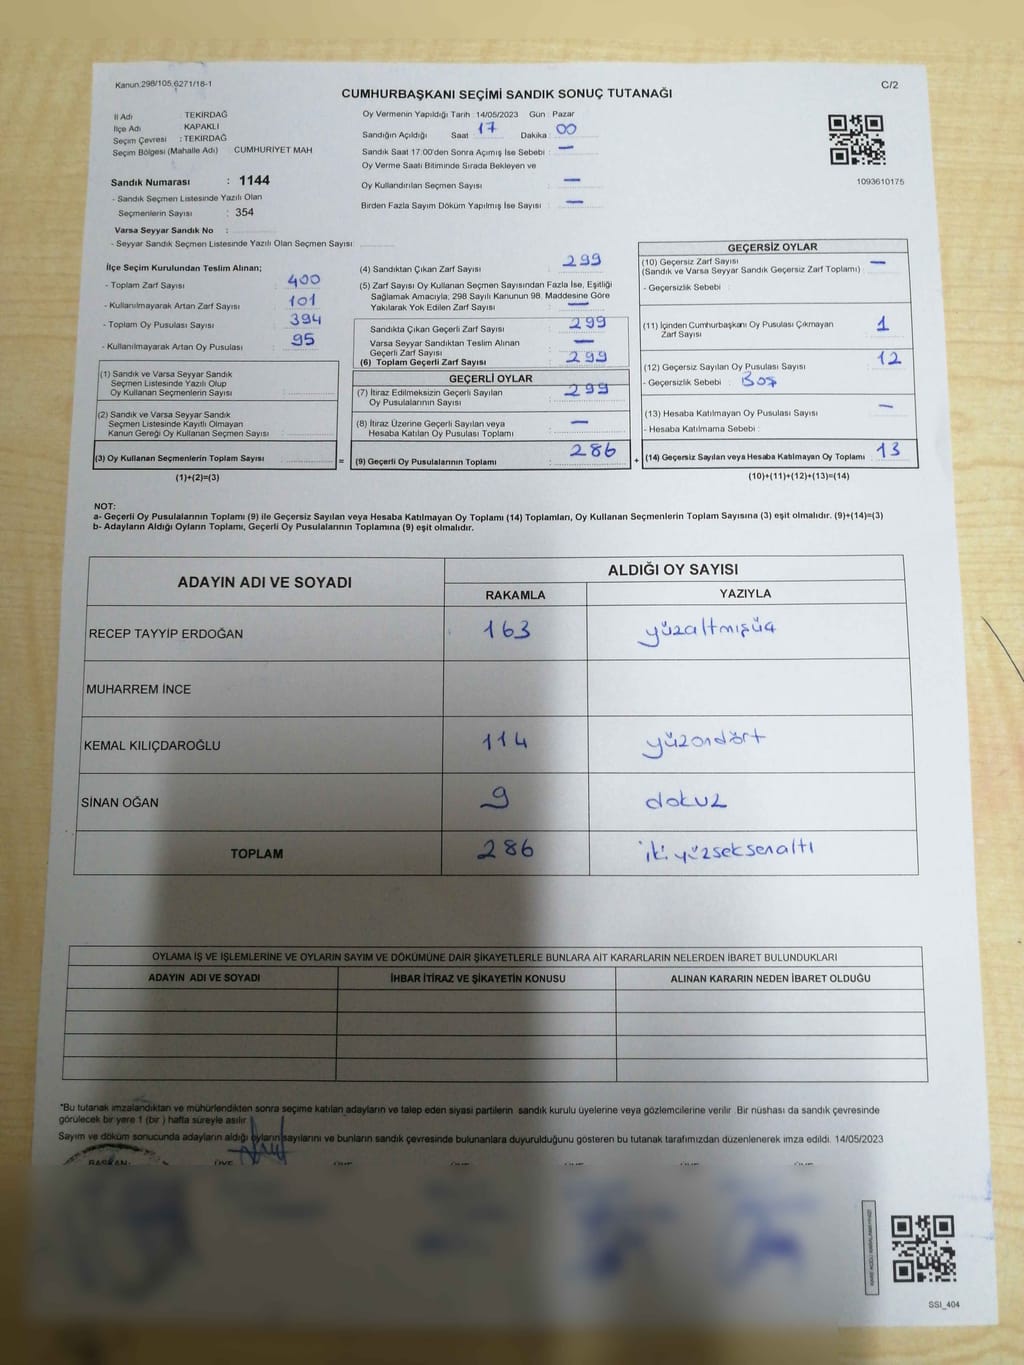 Kanun.298/105,6271/18-1
C/2
CUMHURBAŞKANI SEÇİMİ SANDIK SONUÇ TUTANAĞI
İl Adı TEKİRDAĞ
İlçe Adı KAPAKLI
Seçim Çevresi : TEKİRDAĞ
Seçim Bölgesi (Mahalle Adı) CUMHURİYET MAH
Sandık Numarası : 1144
- Sandık Seçmen Listesinde Yazılı Olan
Seçmenlerin Sayısı : 354
Varsa Seyyar Sandık No :
- Seyyar Sandık Seçmen Listesinde Yazılı Olan Seçmen Sayısı:
Oy Vermenin Yapıldığı Tarih : 14/05/2023 Gün : Pazar
Sandığın Açıldığı Saat : 17 Dakika : 00
Sandık Saat 17:00'den Sonra Açılmış İse Sebebi : —
Oy Verme Saati Bitiminde Sırada Bekleyen ve
Oy Kullandırılan Seçmen Sayısı : —
Birden Fazla Sayım Döküm Yapılmış İse Sayısı : —
1093610175
İlçe Seçim Kurulundan Teslim Alınan;
- Toplam Zarf Sayısı : 400
- Kullanılmayarak Artan Zarf Sayısı : 101
- Toplam Oy Pusulası Sayısı : 394
- Kullanılmayarak Artan Oy Pusulası : 95
(1) Sandık ve Varsa Seyyar Sandık
Seçmen Listesinde Yazılı Olup
Oy Kullanan Seçmenlerin Sayısı :
(2) Sandık ve Varsa Seyyar Sandık
Seçmen Listesinde Kayıtlı Olmayan
Kanun Gereği Oy Kullanan Seçmen Sayısı :
(3) Oy Kullanan Seçmenlerin Toplam Sayısı :
(1)+(2)=(3)
(4) Sandıktan Çıkan Zarf Sayısı : 299
(5) Zarf Sayısı Oy Kullanan Seçmen Sayısından Fazla İse, Eşitliği
Sağlamak Amacıyla, 298 Sayılı Kanunun 98. Maddesine Göre
Yakılarak Yok Edilen Zarf Sayısı : —
Sandıkta Çıkan Geçerli Zarf Sayısı : 299
Varsa Seyyar Sandıktan Teslim Alınan
Geçerli Zarf Sayısı : —
(6) Toplam Geçerli Zarf Sayısı : 299
GEÇERLİ OYLAR
(7) İtiraz Edilmeksizin Geçerli Sayılan
Oy Pusulalarının Sayısı : 299
(8) İtiraz Üzerine Geçerli Sayılan veya
Hesaba Katılan Oy Pusulası Toplamı : —
= (9) Geçerli Oy Pusulalarının Toplamı : 286
GEÇERSİZ OYLAR
(10) Geçersiz Zarf Sayısı : —
(Sandık ve Varsa Seyyar Sandık Geçersiz Zarf Toplamı)
- Geçersizlik Sebebi :
(11) İçinden Cumhurbaşkanı Oy Pusulası Çıkmayan
Zarf Sayısı : 1
(12) Geçersiz Sayılan Oy Pusulası Sayısı : 12
- Geçersizlik Sebebi : Boş
(13) Hesaba Katılmayan Oy Pusulası Sayısı : —
- Hesaba Katılmama Sebebi :
+ (14) Geçersiz Sayılan veya Hesaba Katılmayan Oy Toplamı : 13
(10)+(11)+(12)+(13)=(14)
NOT:
a- Geçerli Oy Pusulalarının Toplamı (9) ile Geçersiz Sayılan veya Hesaba Katılmayan Oy Toplamı (14) Toplamları, Oy Kullanan Seçmenlerin Toplam Sayısına (3) eşit olmalıdır. (9)+(14)=(3)
b- Adayların Aldığı Oyların Toplamı, Geçerli Oy Pusulalarının Toplamına (9) eşit olmalıdır.
ADAYIN ADI VE SOYADI
ALDIĞI OY SAYISI
RAKAMLA YAZIYLA
RECEP TAYYİP ERDOĞAN 163 yüzaltmışüç
MUHARREM İNCE
KEMAL KILIÇDAROĞLU 114 yüzondört
SİNAN OĞAN 9 dokuz
TOPLAM 286 iki yüzseksenaltı
OYLAMA İŞ VE İŞLEMLERİNE VE OYLARIN SAYIM VE DÖKÜMÜNE DAİR ŞİKAYETLERLE BUNLARA AİT KARARLARIN NELERDEN İBARET BULUNDUKLARI
ADAYIN ADI VE SOYADI İHBAR İTİRAZ VE ŞİKAYETİN KONUSU ALINAN KARARIN NEDEN İBARET OLDUĞU
*Bu tutanak imzalandıktan ve mühürlendikten sonra seçime katılan adayların ve talep eden siyasi partilerin sandık kurulu üyelerine veya gözlemcilerine verilir. Bir nüshası da sandık çevresinde
görülecek bir yere 1 (bir ) hafta süreyle asılır.
Sayım ve döküm sonucunda adayların aldığı oyların sayılarını ve bunların sandık çevresinde bulunanlara duyurulduğunu gösteren bu tutanak tarafımızdan düzenlenerek imza edildi. 14/05/2023
BAŞKAN: ÜYE ÜYE
SSI_404